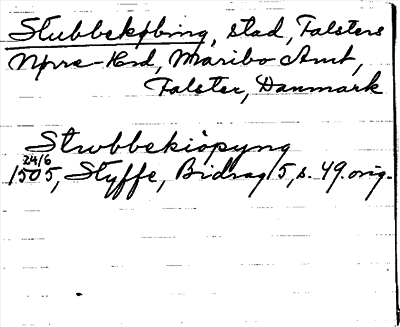 Stubbekøbing, stad, Falsters
Nørre-Hrd, Maribo Amt,
Falster, Danmark
Strvbbekiöpyng
24/6
1505, Styffe, Bidrag 5, s. 49. orig.